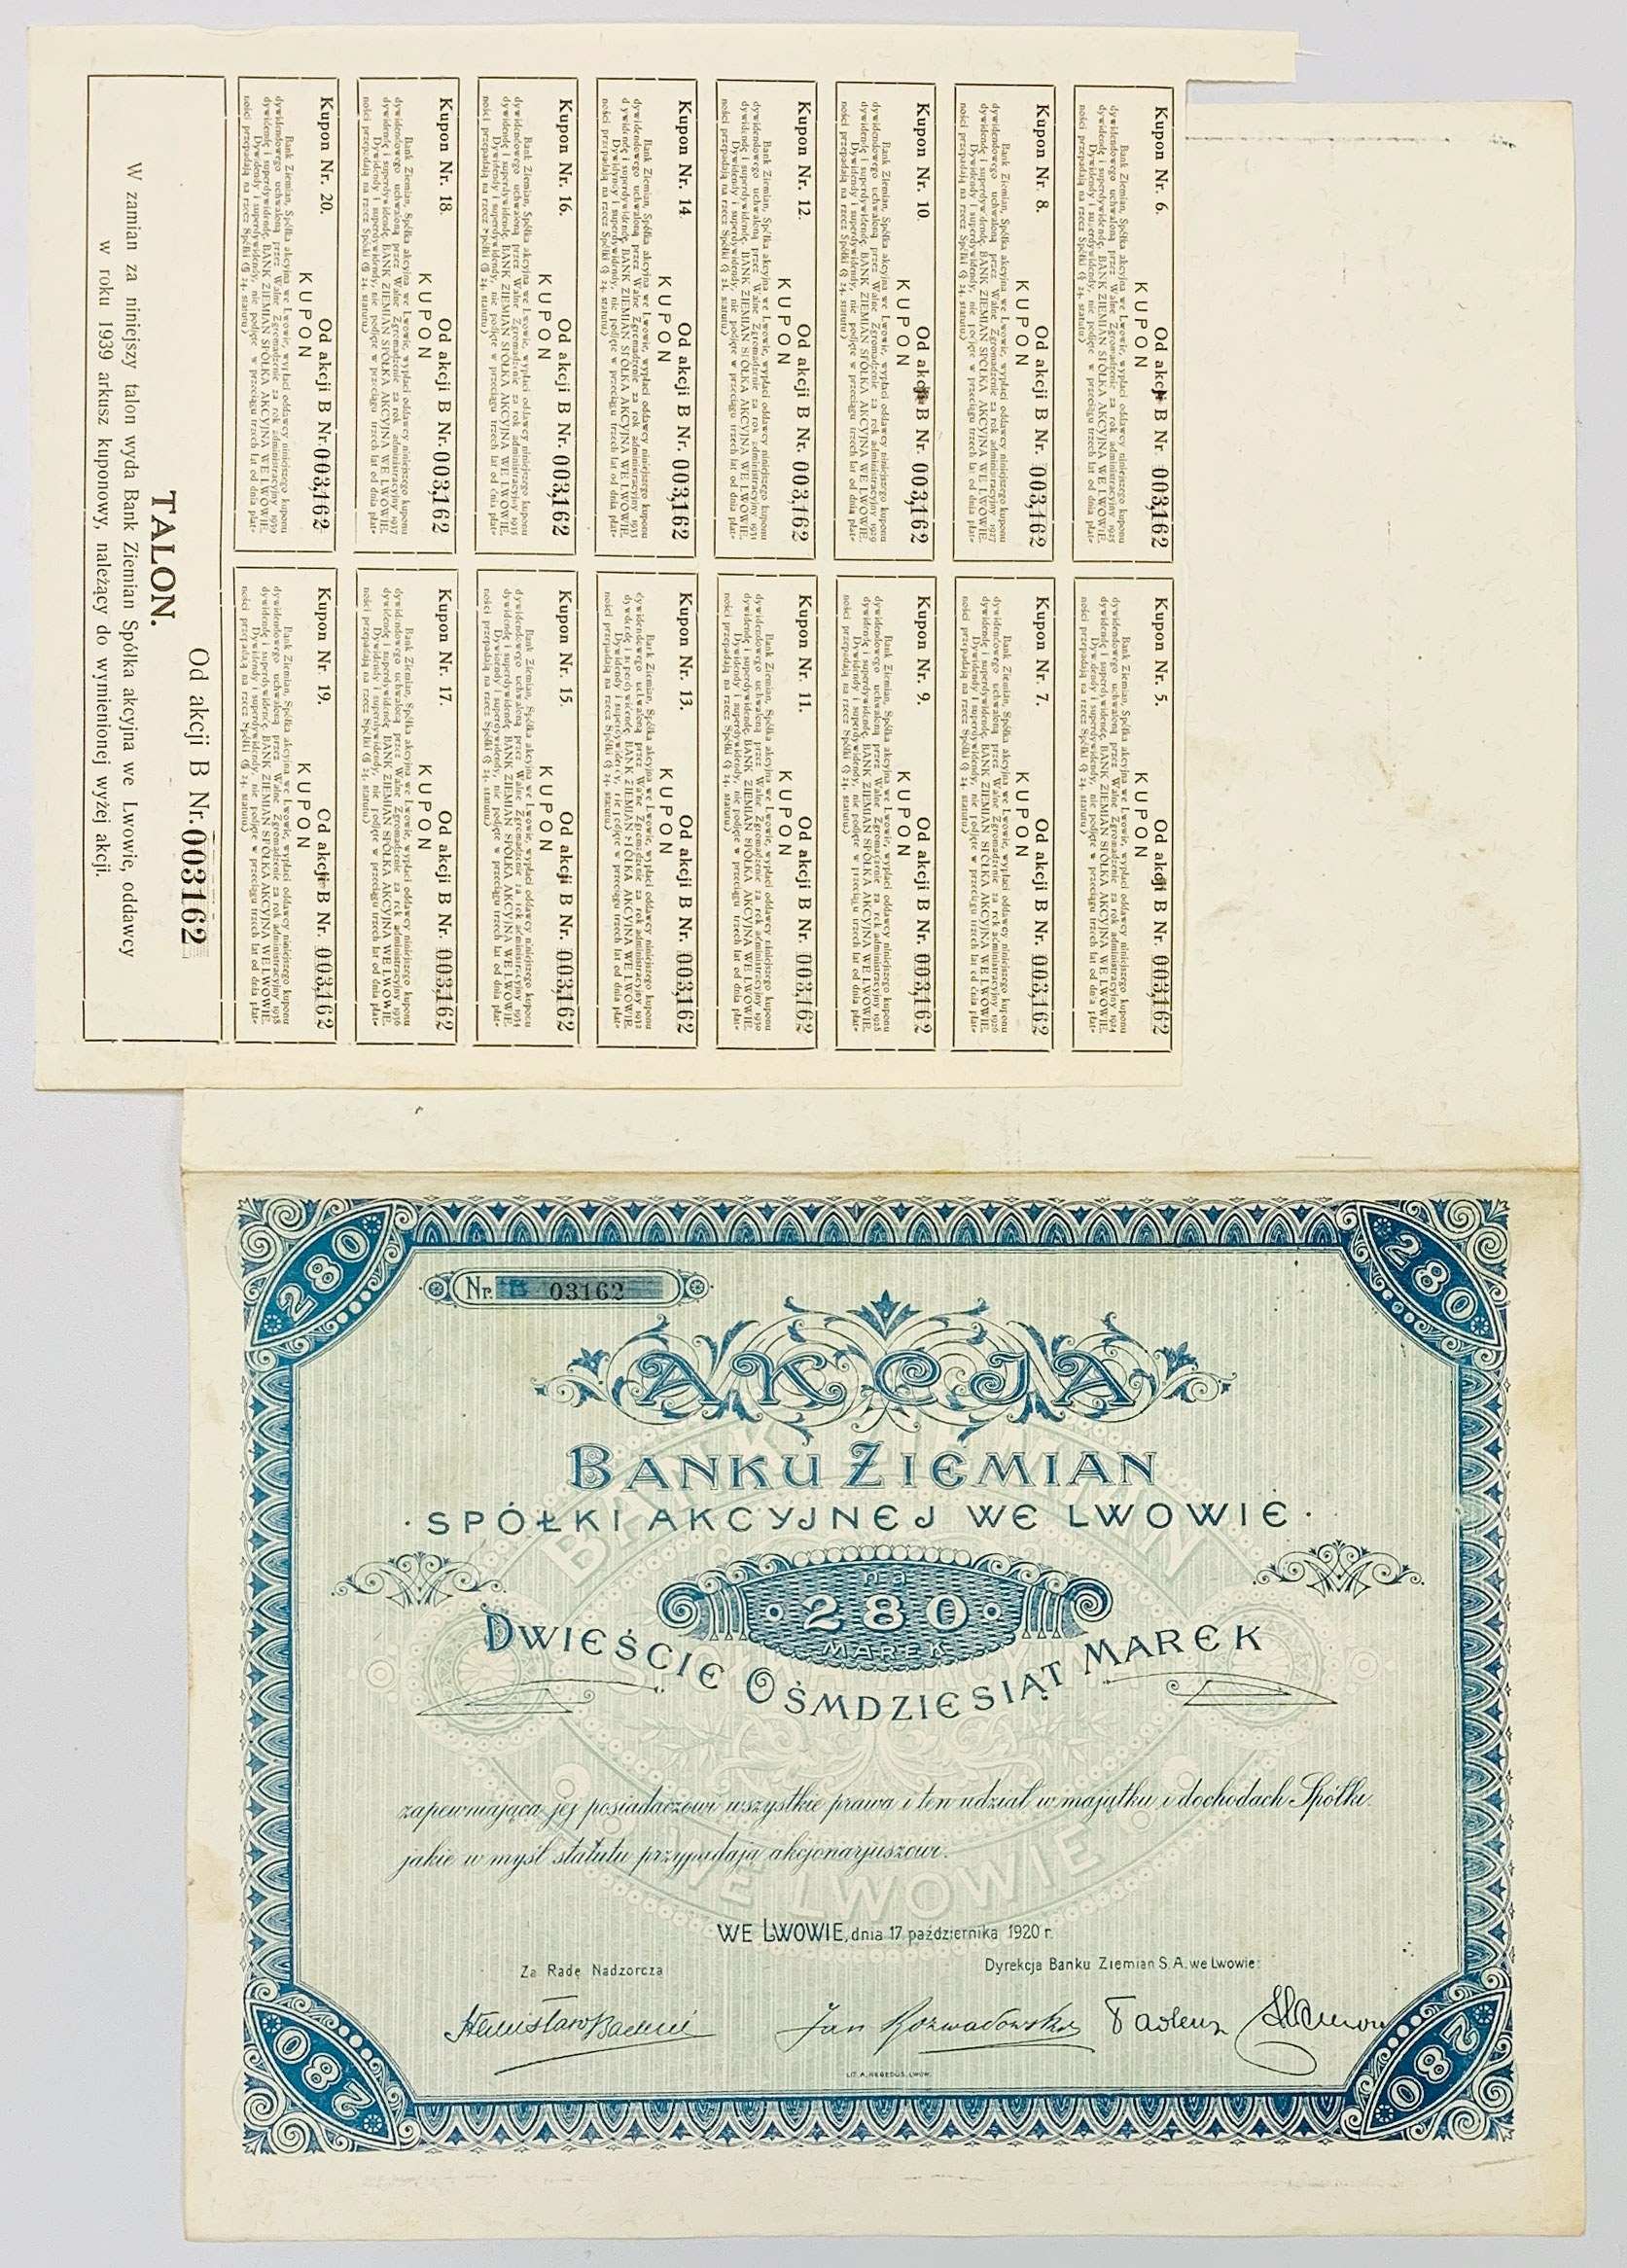 Kupon Nr. 20. Od akcji B Nr. 003,162
KUPON
Bank Ziemian, Spółka akcyjna we Lwowie, wypłaci oddawcy niniejszego kuponu
dywidendowego uchwaloną przez Walne Zgromadzenie za rok administracyjny 1939
dywidendę i superdywidendę. BANK ZIEMIAN SPÓŁKA AKCYJNA WE LWOWIE.
Dywidendy i superdywidendy, nie podjęte w przeciągu trzech lat od dnia płat-
ności przepadają na rzecz Spółki (§ 24. statutu)
Kupon Nr. 18. Od akcji B Nr. 003,162
KUPON
Bank Ziemian, Spółka akcyjna we Lwowie, wypłaci oddawcy niniejszego kuponu
dywidendowego uchwaloną przez Walne Zgromadzenie za rok administracyjny 1937
dywidendę i superdywidendę. BANK ZIEMIAN SPÓŁKA AKCYJNA WE LWOWIE.
Dywidendy i superdywidendy, nie podjęte w przeciągu trzech lat od dnia płat-
ności przepadają na rzecz Spółki (§ 24. statutu)
Kupon Nr. 16. Od akcji B Nr. 003,162
KUPON
Bank Ziemian, Spółka akcyjna we Lwowie, wypłaci oddawcy niniejszego kuponu
dywidendowego uchwaloną przez Walne Zgromadzenie za rok administracyjny 1935
dywidendę i superdywidendę. BANK ZIEMIAN SPÓŁKA AKCYJNA WE LWOWIE.
Dywidendy i superdywidendy, nie podjęte w przeciągu trzech lat od dnia płat-
ności przepadają na rzecz Spółki (§ 24. statutu)
Kupon Nr. 14. Od akcji B Nr. 003,162
KUPON
Bank Ziemian, Spółka akcyjna we Lwowie, wypłaci oddawcy niniejszego kuponu
dywidendowego uchwaloną przez Walne Zgromadzenie za rok administracyjny 1933
dywidendę i superdywidendę. BANK ZIEMIAN SPÓŁKA AKCYJNA WE LWOWIE.
Dywidendy i superdywidendy, nie podjęte w przeciągu trzech lat od dnia płat-
ności przepadają na rzecz Spółki (§ 24. statutu)
Kupon Nr. 12. Od akcji B Nr. 003,162
KUPON
Bank Ziemian, Spółka akcyjna we Lwowie, wypłaci oddawcy niniejszego kuponu
dywidendowego uchwaloną przez Walne Zgromadzenie za rok administracyjny 1931
dywidendę i superdywidendę. BANK ZIEMIAN SPÓŁKA AKCYJNA WE LWOWIE.
Dywidendy i superdywidendy, nie podjęte w przeciągu trzech lat od dnia płat-
ności przepadają na rzecz Spółki (§ 24. statutu)
Kupon Nr. 10. Od akcji B Nr. 003,162
KUPON
Bank Ziemian, Spółka akcyjna we Lwowie, wypłaci oddawcy niniejszego kuponu
dywidendowego uchwaloną przez Walne Zgromadzenie za rok administracyjny 1929
dywidendę i superdywidendę. BANK ZIEMIAN SPÓŁKA AKCYJNA WE LWOWIE.
Dywidendy i superdywidendy, nie podjęte w przeciągu trzech lat od dnia płat-
ności przepadają na rzecz Spółki (§ 24. statutu)
Kupon Nr. 8. Od akcji B Nr. 003,162
KUPON
Bank Ziemian, Spółka akcyjna we Lwowie, wypłaci oddawcy niniejszego kuponu
dywidendowego uchwaloną przez Walne Zgromadzenie za rok administracyjny 1927
dywidendę i superdywidendę. BANK ZIEMIAN SPÓŁKA AKCYJNA WE LWOWIE.
Dywidendy i superdywidendy, nie podjęte w przeciągu trzech lat od dnia płat-
ności przepadają na rzecz Spółki (§ 24. statutu)
Kupon Nr. 6. Od akcji B Nr. 003,162
KUPON
Bank Ziemian, Spółka akcyjna we Lwowie, wypłaci oddawcy niniejszego kuponu
dywidendowego uchwaloną przez Walne Zgromadzenie za rok administracyjny 1925
dywidendę i superdywidendę. BANK ZIEMIAN SPÓŁKA AKCYJNA WE LWOWIE.
Dywidendy i superdywidendy, nie podjęte w przeciągu trzech lat od dnia płat-
ności przepadają na rzecz Spółki (§ 24. statutu)
Kupon Nr. 19. Od akcji B Nr. 003,162
KUPON
Bank Ziemian, Spółka akcyjna we Lwowie, wypłaci oddawcy niniejszego kuponu
dywidendowego uchwaloną przez Walne Zgromadzenie za rok administracyjny 1938
dywidendę i superdywidendę. BANK ZIEMIAN SPÓŁKA AKCYJNA WE LWOWIE.
Dywidendy i superdywidendy, nie podjęte w przeciągu trzech lat od dnia płat-
ności przepadają na rzecz Spółki (§ 24. statutu)
Kupon Nr. 17. Od akcji B Nr. 003,162
KUPON
Bank Ziemian, Spółka akcyjna we Lwowie, wypłaci oddawcy niniejszego kuponu
dywidendowego uchwaloną przez Walne Zgromadzenie za rok administracyjny 1936
dywidendę i superdywidendę. BANK ZIEMIAN SPÓŁKA AKCYJNA WE LWOWIE.
Dywidendy i superdywidendy, nie podjęte w przeciągu trzech lat od dnia płat-
ności przepadają na rzecz Spółki (§ 24. statutu)
Kupon Nr. 15. Od akcji B Nr. 003,162
KUPON
Bank Ziemian, Spółka akcyjna we Lwowie, wypłaci oddawcy niniejszego kuponu
dywidendowego uchwaloną przez Walne Zgromadzenie za rok administracyjny 1934
dywidendę i superdywidendę. BANK ZIEMIAN SPÓŁKA AKCYJNA WE LWOWIE.
Dywidendy i superdywidendy, nie podjęte w przeciągu trzech lat od dnia płat-
ności przepadają na rzecz Spółki (§ 24. statutu)
Kupon Nr. 13. Od akcji B Nr. 003,162
KUPON
Bank Ziemian, Spółka akcyjna we Lwowie, wypłaci oddawcy niniejszego kuponu
dywidendowego uchwaloną przez Walne Zgromadzenie za rok administracyjny 1932
dywidendę i superdywidendę. BANK ZIEMIAN SPÓŁKA AKCYJNA WE LWOWIE.
Dywidendy i superdywidendy, nie podjęte w przeciągu trzech lat od dnia płat-
ności przepadają na rzecz Spółki (§ 24. statutu)
Kupon Nr. 11. Od akcji B Nr. 003,162
KUPON
Bank Ziemian, Spółka akcyjna we Lwowie, wypłaci oddawcy niniejszego kuponu
dywidendowego uchwaloną przez Walne Zgromadzenie za rok administracyjny 1930
dywidendę i superdywidendę. BANK ZIEMIAN SPÓŁKA AKCYJNA WE LWOWIE.
Dywidendy i superdywidendy, nie podjęte w przeciągu trzech lat od dnia płat-
ności przepadają na rzecz Spółki (§ 24. statutu)
Kupon Nr. 9. Od akcji B Nr. 003,162
KUPON
Bank Ziemian, Spółka akcyjna we Lwowie, wypłaci oddawcy niniejszego kuponu
dywidendowego uchwaloną przez Walne Zgromadzenie za rok administracyjny 1928
dywidendę i superdywidendę. BANK ZIEMIAN SPÓŁKA AKCYJNA WE LWOWIE.
Dywidendy i superdywidendy, nie podjęte w przeciągu trzech lat od dnia płat-
ności przepadają na rzecz Spółki (§ 24. statutu)
Kupon Nr. 7. Od akcji B Nr. 003,162
KUPON
Bank Ziemian, Spółka akcyjna we Lwowie, wypłaci oddawcy niniejszego kuponu
dywidendowego uchwaloną przez Walne Zgromadzenie za rok administracyjny 1926
dywidendę i superdywidendę. BANK ZIEMIAN SPÓŁKA AKCYJNA WE LWOWIE.
Dywidendy i superdywidendy, nie podjęte w przeciągu trzech lat od dnia płat-
ności przepadają na rzecz Spółki (§ 24. statutu)
Kupon Nr. 5. Od akcji B Nr. 003,162
KUPON
Bank Ziemian, Spółka akcyjna we Lwowie, wypłaci oddawcy niniejszego kuponu
dywidendowego uchwaloną przez Walne Zgromadzenie za rok administracyjny 1924
dywidendę i superdywidendę. BANK ZIEMIAN SPÓŁKA AKCYJNA WE LWOWIE.
Dywidendy i superdywidendy, nie podjęte w przeciągu trzech lat od dnia płat-
ności przepadają na rzecz Spółki (§ 24. statutu)
Od akcji B Nr. 003162
TALON.
W zamian za niniejszy talon wyda Bank Ziemian Spółka akcyjna we Lwowie, oddawcy
w roku 1939 arkusz kuponowy, należący do wymienionej wyżej akcji.
280
280
Nr. B 03162
AKCJA
BANKU ZIEMIAN
· SPÓŁKI AKCYJNEJ WE LWOWIE ·
na
280
MAREK
DWIEŚCIE OŚMDZIESIĄT MAREK
BANK ZIEMIAN
SPÓŁKA AKCYJNA
WE LWOWIE
zapewniająca jej posiadaczowi wszystkie prawa i ten udział w majątku i dochodach Spółki.
jakie w myśl statutu przypadają akcjonarjuszowi.
WE LWOWIE, dnia 17 października 1920 r.
Za Radę Nadzorczą
Dyrekcja Banku Ziemian S. A. we Lwowie:
Stanisław Badeni
Jan Rozwadowski
Tadeusz
LIT. A. HEGEDÜS, LWÓW.
280
280